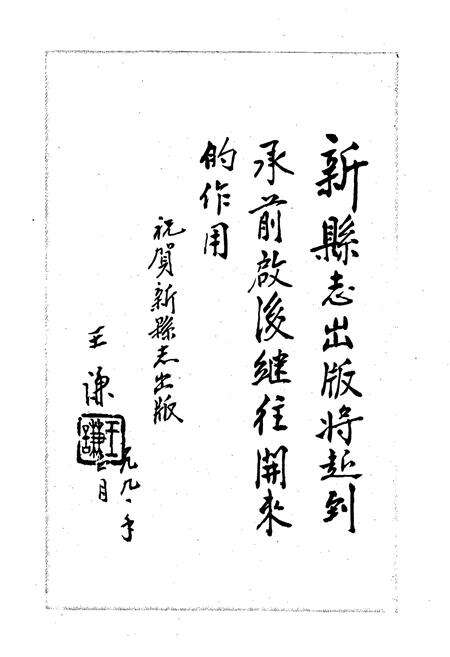 新縣志出版将起到
承前啟後継往開來
的作用
祝賀新縣志出版
王谦
一九九一年
月